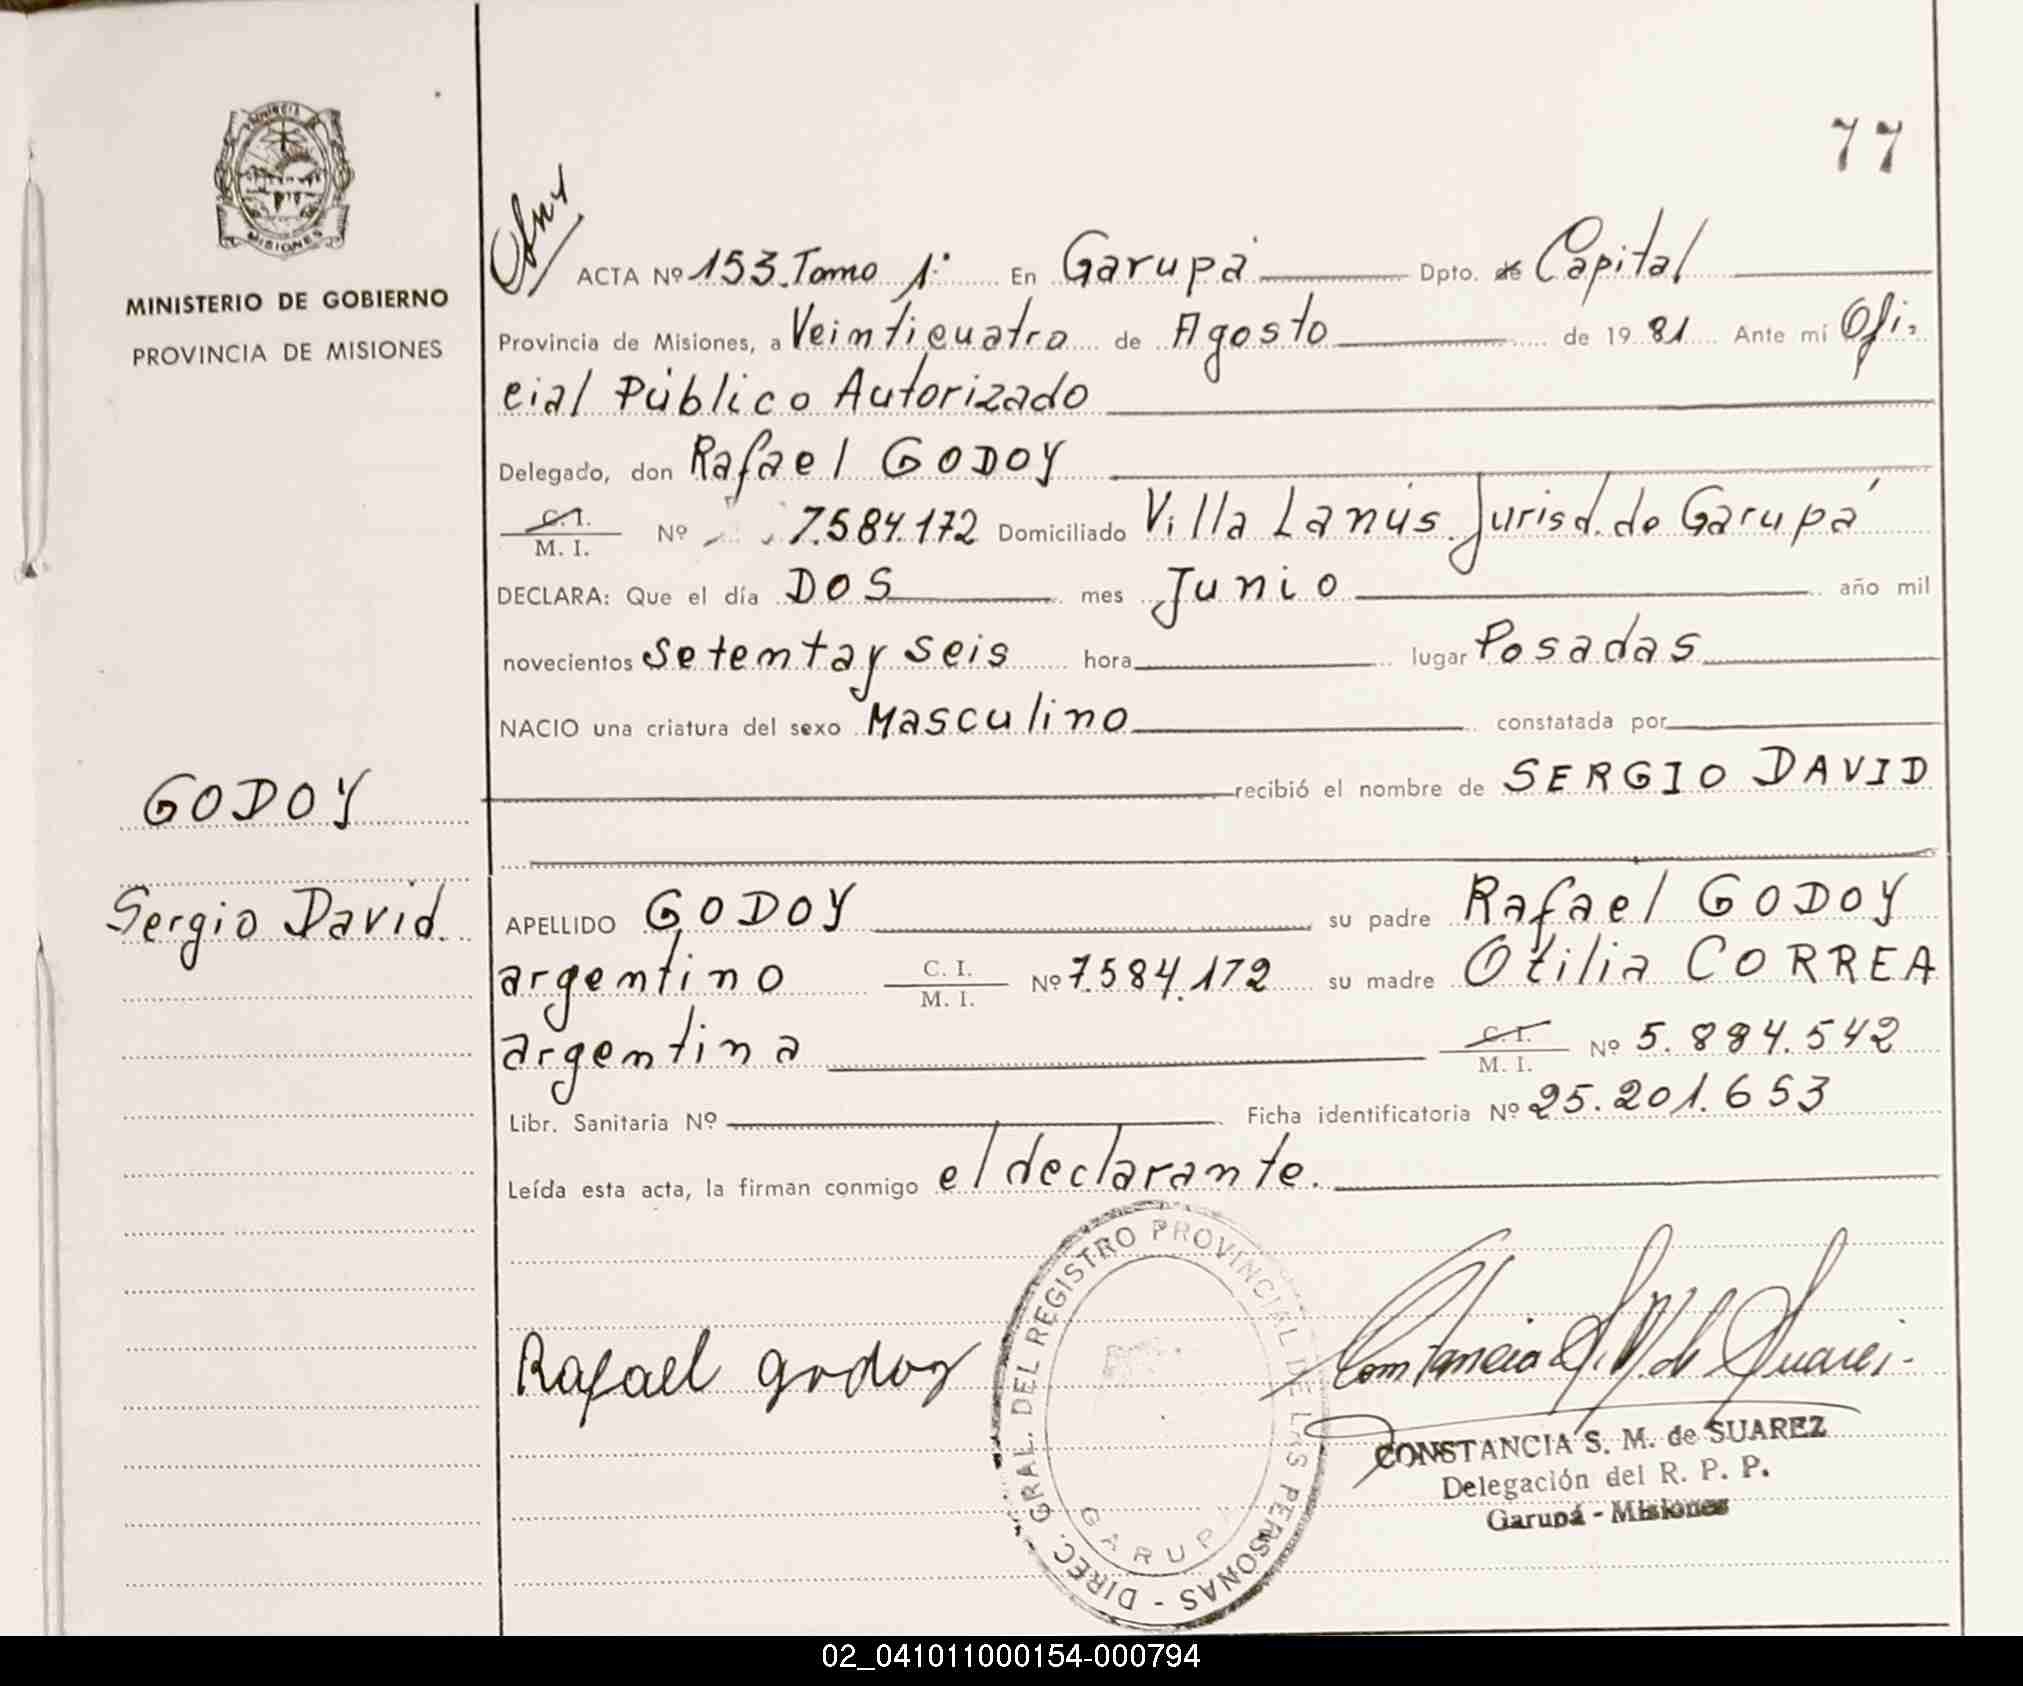 77
PROVINCIA DE
MISIONES
MINISTERIO DE GOBIERNO
PROVINCIA DE MISIONES
ACTA Nº 153. Tomo 1º En Garupá Dpto. de Capital
Provincia de Misiones, a Veinticuatro de Agosto de 1981 Ante mí Ofi-
cial Público Autorizado
Delegado, don Rafael GODOY
C. I. / M. I. Nº 7.584.172 Domiciliado Villa Lanús Jurisd. de Garupá
DECLARA: Que el día DOS mes Junio año mil
novecientos setenta y seis hora lugar Posadas
NACIO una criatura del sexo Masculino constatada por
recibió el nombre de SERGIO DAVID
GODOY
Sergio David.
APELLIDO GODOY su padre Rafael GODOY
argentino C. I. / M. I. Nº 7.584.172 su madre Otilia CORREA
argentina C. I. / M. I. Nº 5.884.542
Libr. Sanitaria Nº Ficha identificatoria Nº 25.201.653
Leída esta acta, la firman conmigo el declarante.
DIREC. GRAL. DEL REGISTRO PROVINCIAL DE LAS PERSONAS -
GARUPA
Rafael godoy
Constancia S. M. de Suarez
CONSTANCIA S. M. de SUAREZ
Delegación del R. P. P.
Garupá - Misiones
02_041011000154-000794